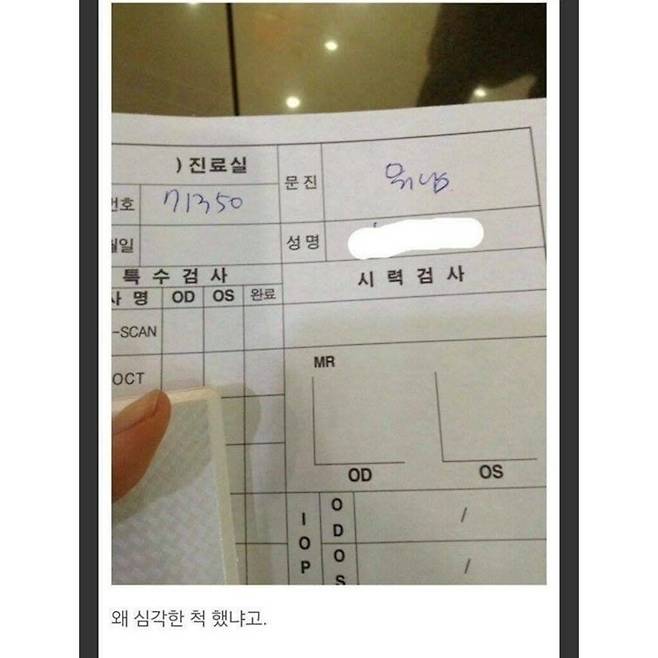 )진료실
문진
번호 71350
월일
성명
특수검사
시력검사
사명 OD OS 완료
-SCAN
OCT
MR
OD OS
IOP
OD /
OS /
왜 심각한 척 했냐고.